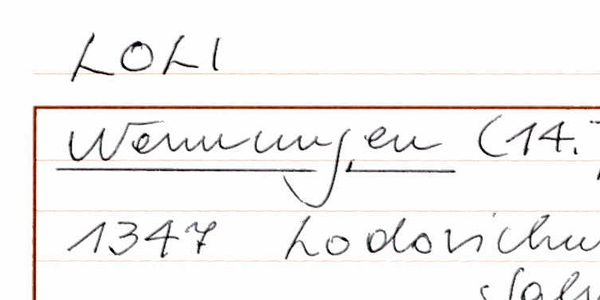 LOLI
Wennungen (14.
1347 Lodovichu